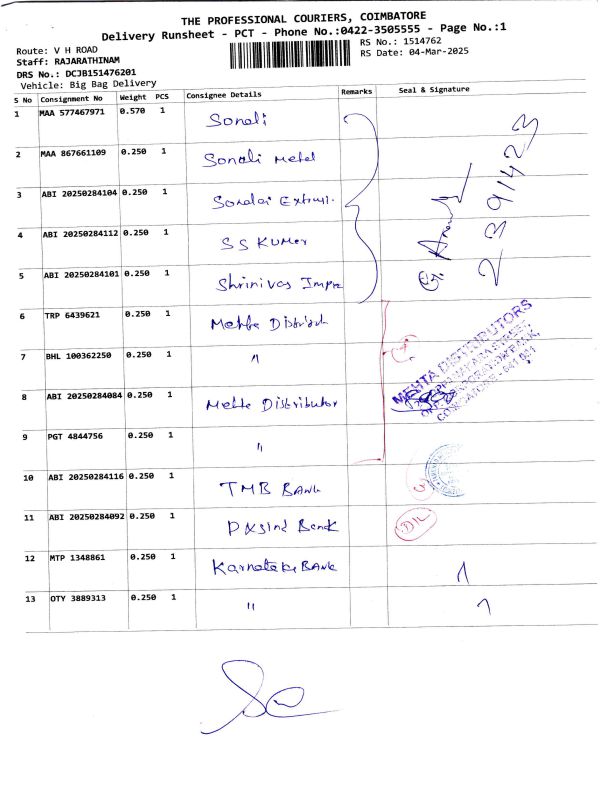 THE PROFESSIONAL COURIERS, COIMBATORE
Delivery Runsheet - PCT - Phone No.:0422-3505555 - Page No.:1
Route: V H ROAD
RS No.: 1514762
Staff: RAJARATHINAM
RS Date: 04-Mar-2025
DRS No.: DCJB151476201
Vehicle: Big Bag Delivery
S No Consignment No Weight PCS Consignee Details Remarks Seal & Signature
1 MAA 577467971 0.570 1 Sonali
2 MAA 867661109 0.250 1 Sonali Metal
3 ABI 20250284104 0.250 1
4 ABI 20250284112 0.250 1 S S KUMAr
5 ABI 20250284101 0.250 1 Shrinivas Impex
2391423
6 TRP 6439621 0.250 1 Mehta
7 BHL 100362250 0.250 1 "
8 ABI 20250284084 0.250 1 Mehta Distributor
MEHTA DISTRIBUTORS
COIMBATORE - 641 001
9 PGT 4844756 0.250 1 "
10 ABI 20250284116 0.250 1 TMB BANK
11 ABI 20250284092 0.250 1 P & Sind Bank
12 MTP 1348861 0.250 1 Karnataka BANK
13 OTY 3889313 0.250 1 "